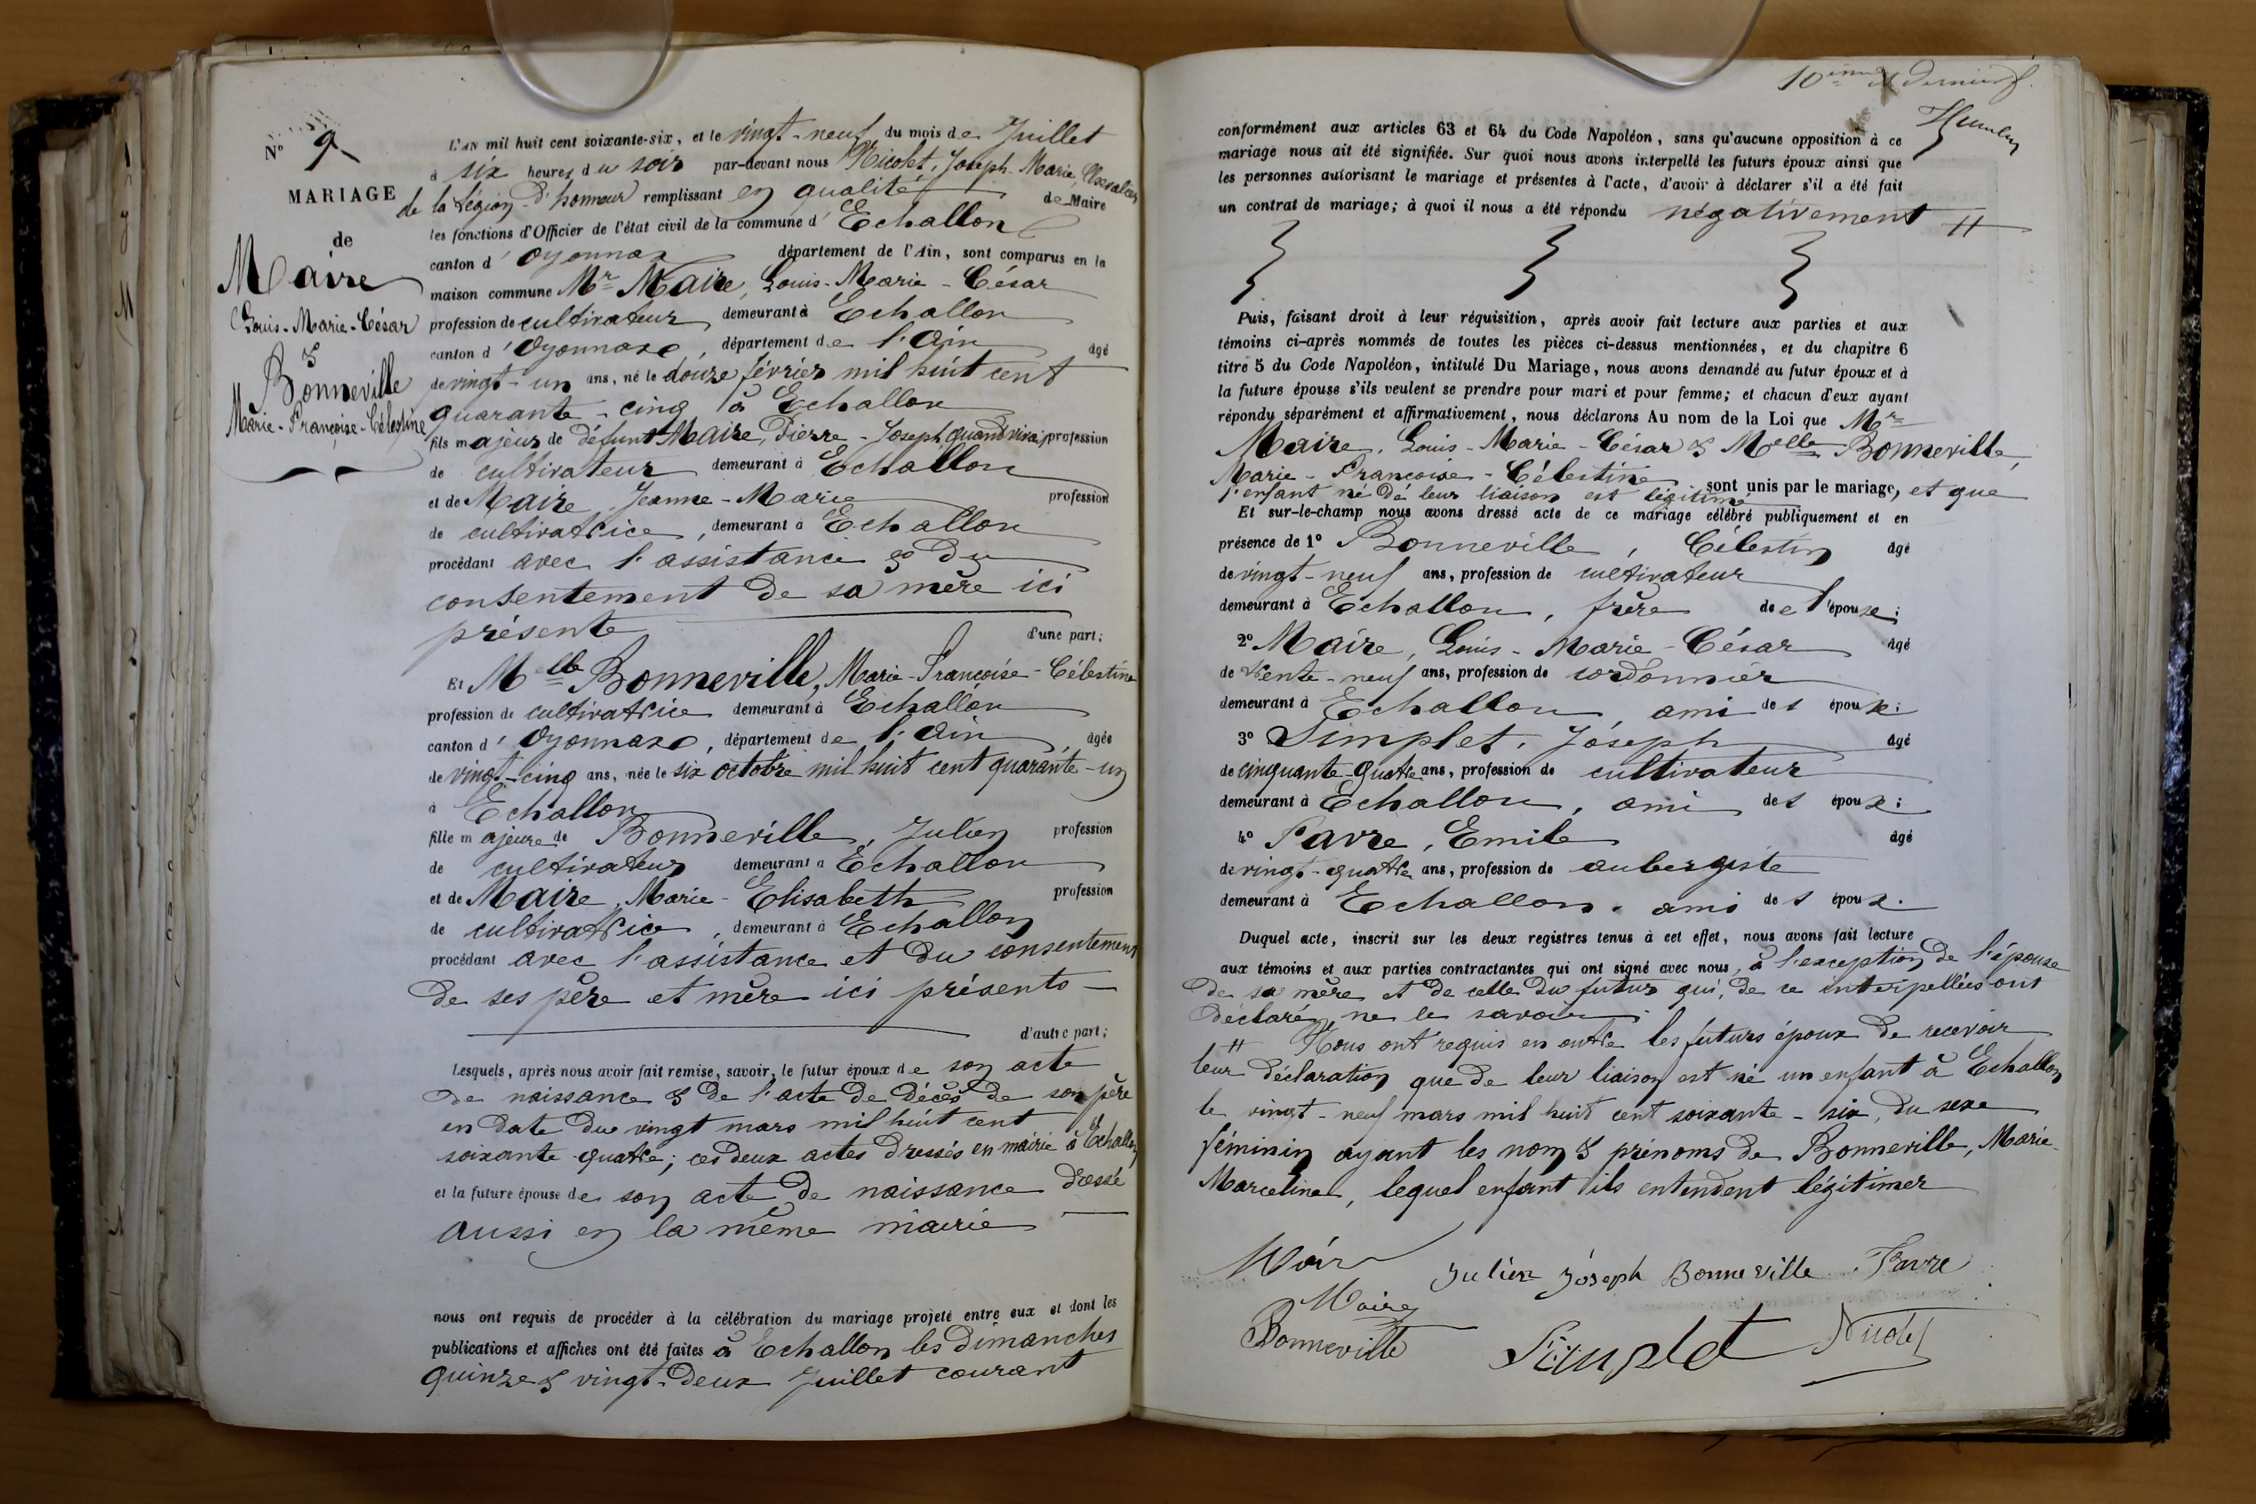 N° 9
MARIAGE
de
Maire
Louis-Marie-César
&
Bonneville
Marie-Françoise-Célestine
L'AN mil huit cent soixante-six, et le vingt-neuf du mois de Juillet
à six heures du soir par-devant nous Nicolet, Joseph-Marie, Chevalier
de la Légion d'honneur remplissant en qualité de Maire
les fonctions d'Officier de l'état civil de la commune d' Echallon
canton d' Oyonnax département de l'Ain, sont comparus en la
maison commune Mr Maire, Louis-Marie-César
profession de cultivateur demeurant à Echallon
canton d' Oyonnax, département de l'Ain âgé
de vingt-un ans, né le douze février mil huit cent
quarante-cinq à Echallon
fils majeur de défunt Maire, Pierre-Joseph quand vivait profession
de cultivateur demeurant à Echallon
et de Maire Jeanne-Marie profession
de cultivatrice, demeurant à Echallon
procédant avec l'assistance & du
consentement de sa mère ici
présente d'une part;
Et Melle Bonneville, Marie-Françoise-Célestine
profession de cultivatrice demeurant à Echallon
canton d' Oyonnax, département de l'Ain âgée
de vingt-cinq ans, née le six octobre mil huit cent quarante-un
à Echallon
fille majeure de Bonneville, Julien profession
de cultivateur demeurant à Echallon
et de Maire, Marie-Elisabeth profession
de cultivatrice, demeurant à Echallon
procédant avec l'assistance et du consentement
de ses père et mère ici présents
d'autre part;
Lesquels, après nous avoir fait remise, savoir, le futur époux de son acte
de naissance & de l'acte de décès de son père
en date du vingt mars mil huit cent
soixante-quatre; ces deux actes dressés en mairie à Echallon
et la future épouse de son acte de naissance dressé
aussi en la même mairie
nous ont requis de procéder à la célébration du mariage projeté entre eux et dont les
publications et affiches ont été faites à Echallon les dimanches
quinze & vingt-deux Juillet courant
10ème & dernier f.
conformément aux articles 63 et 64 du Code Napoléon, sans qu'aucune opposition à ce
mariage nous ait été signifiée. Sur quoi nous avons interpellé les futurs époux ainsi que
les personnes autorisant le mariage et présentes à l'acte, d'avoir à déclarer s'il a été fait
un contrat de mariage; à quoi il nous a été répondu négativement #
Puis, faisant droit à leur réquisition, après avoir fait lecture aux parties et aux
témoins ci-après nommés de toutes les pièces ci-dessus mentionnées, et du chapitre 6
titre 5 du Code Napoléon, intitulé Du Mariage, nous avons demandé au futur époux et à
la future épouse s'ils veulent se prendre pour mari et pour femme; et chacun d'eux ayant
répondu séparément et affirmativement, nous déclarons Au nom de la Loi que Mr
Maire, Louis-Marie-César & Melle Bonneville,
Marie-Françoise-Célestine sont unis par le mariage, et que
l'enfant né de leur liaison est légitimé
Et sur-le-champ nous avons dressé acte de ce mariage célébré publiquement et en
présence de 1° Bonneville, Célestin âgé
de vingt-neuf ans, profession de cultivateur
demeurant à Echallon, frère de l'épouse;
2° Maire, Louis-Marie-César âgé
de trente-neuf ans, profession de cordonnier
demeurant à Echallon, ami des époux;
3° Simplet, Joseph âgé
de cinquante-quatre ans, profession de cultivateur
demeurant à Echallon, ami des époux;
4° Favre, Emile âgé
de vingt-quatre ans, profession de aubergiste
demeurant à Echallon, ami des époux.
Duquel acte, inscrit sur les deux registres tenus à cet effet, nous avons fait lecture
aux témoins et aux parties contractantes qui ont signé avec nous, à l'exception de l'épouse
de sa mère et de celle du futur qui, de ce interpellées ont
déclaré ne le savoir.
# Nous ont requis en outre les futurs époux de recevoir
leur déclaration que de leur liaison est né un enfant à Echallon
le vingt-neuf mars mil huit cent soixante-six, du sexe
féminin ayant les nom & prénoms de Bonneville, Marie-
Marceline, lequel enfant ils entendent légitimer
Julien Joseph Bonneville Favre
Maire
Bonneville Simplet Nicolet